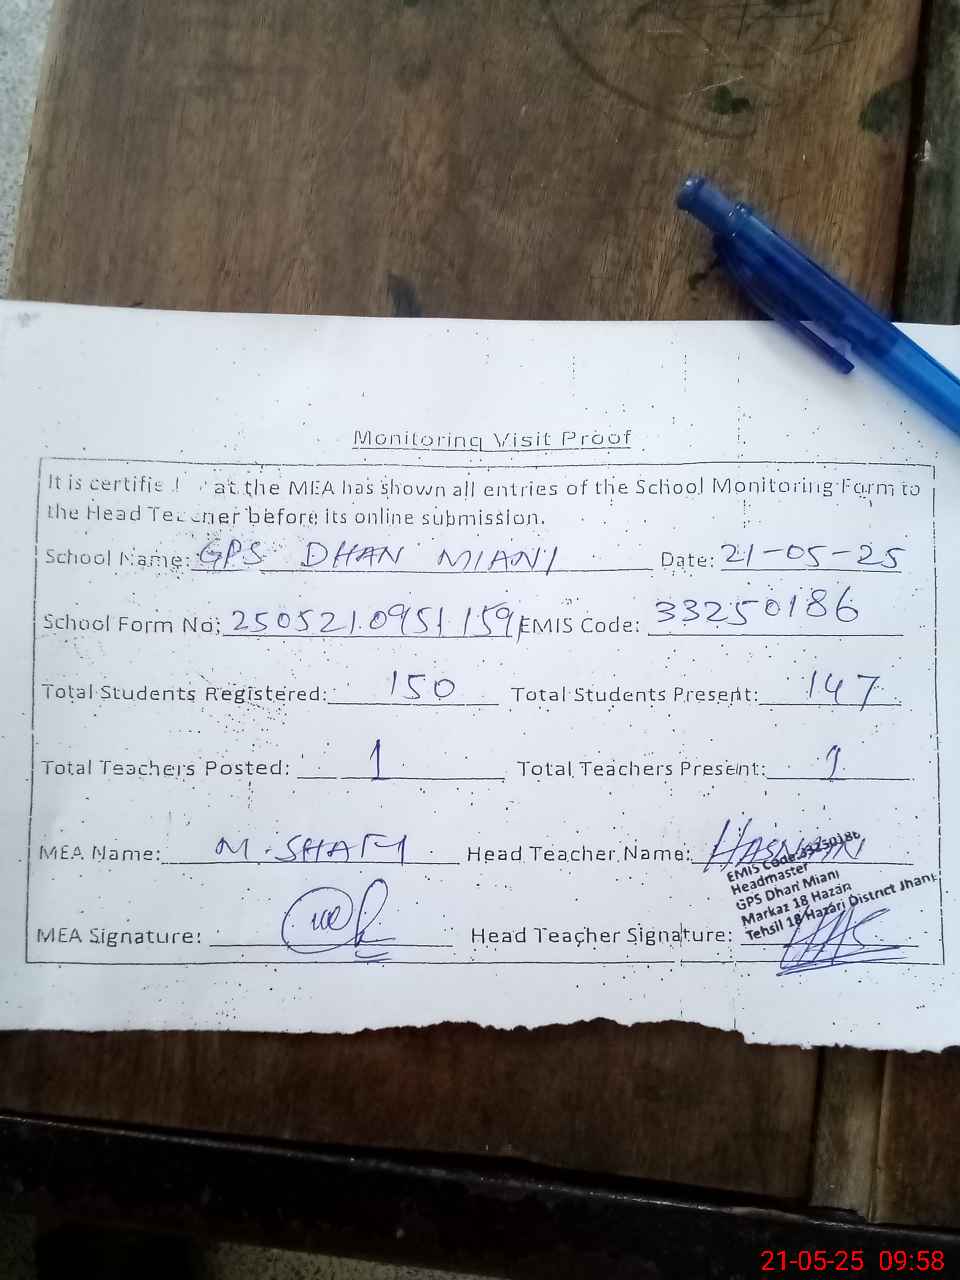 Monitoring Visit Proof
It is certifie at the MEA has shown all entries of the School Monitoring Form to
the Head Teacher before its online submission.
School Name: GPS DHAN MIANI Date: 21-05-25
School Form No: 2505210951159 EMIS Code: 33250186
Total Students Registered: 150 Total Students Present: 147
Total Teachers Posted: 1 Total Teachers Present: 1
MEA Name: M. SHAFI Head Teacher Name:
EMIS Code 33250186
Headmaster
GPS Dhan Miani
Markaz 18 Hazari
Tehsil 18 Hazari District Jhang
MEA Signature: Head Teacher Signature:
21-05-25 09:58